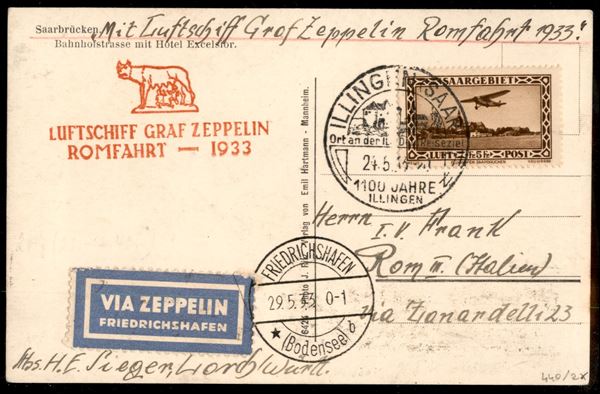 "Mit Luftschiff Graf Zeppelin Romfahrt 1933."
Saarbrücken,
Bahnhofstrasse mit Hotel Excelsior.
LUFTSCHIFF GRAF ZEPPELIN
ROMFAHRT — 1933
ILLINGEN (SAAR)
Ort an der
24.5.
1100 JAHRE
ILLINGEN
SAARGEBIET
LUFT 5 Fr. POST
Verlag von Emil Hartmann - Mannheim.
Herrn
I. V. Frank
Rom III. (Italien)
via Zanardelli 23
FRIEDRICHSHAFEN
29.5.33. 0-1
(Bodensee) b
VIA ZEPPELIN
FRIEDRICHSHAFEN
Abs. H. E. Sieger, Lorch Württ.
440/2x